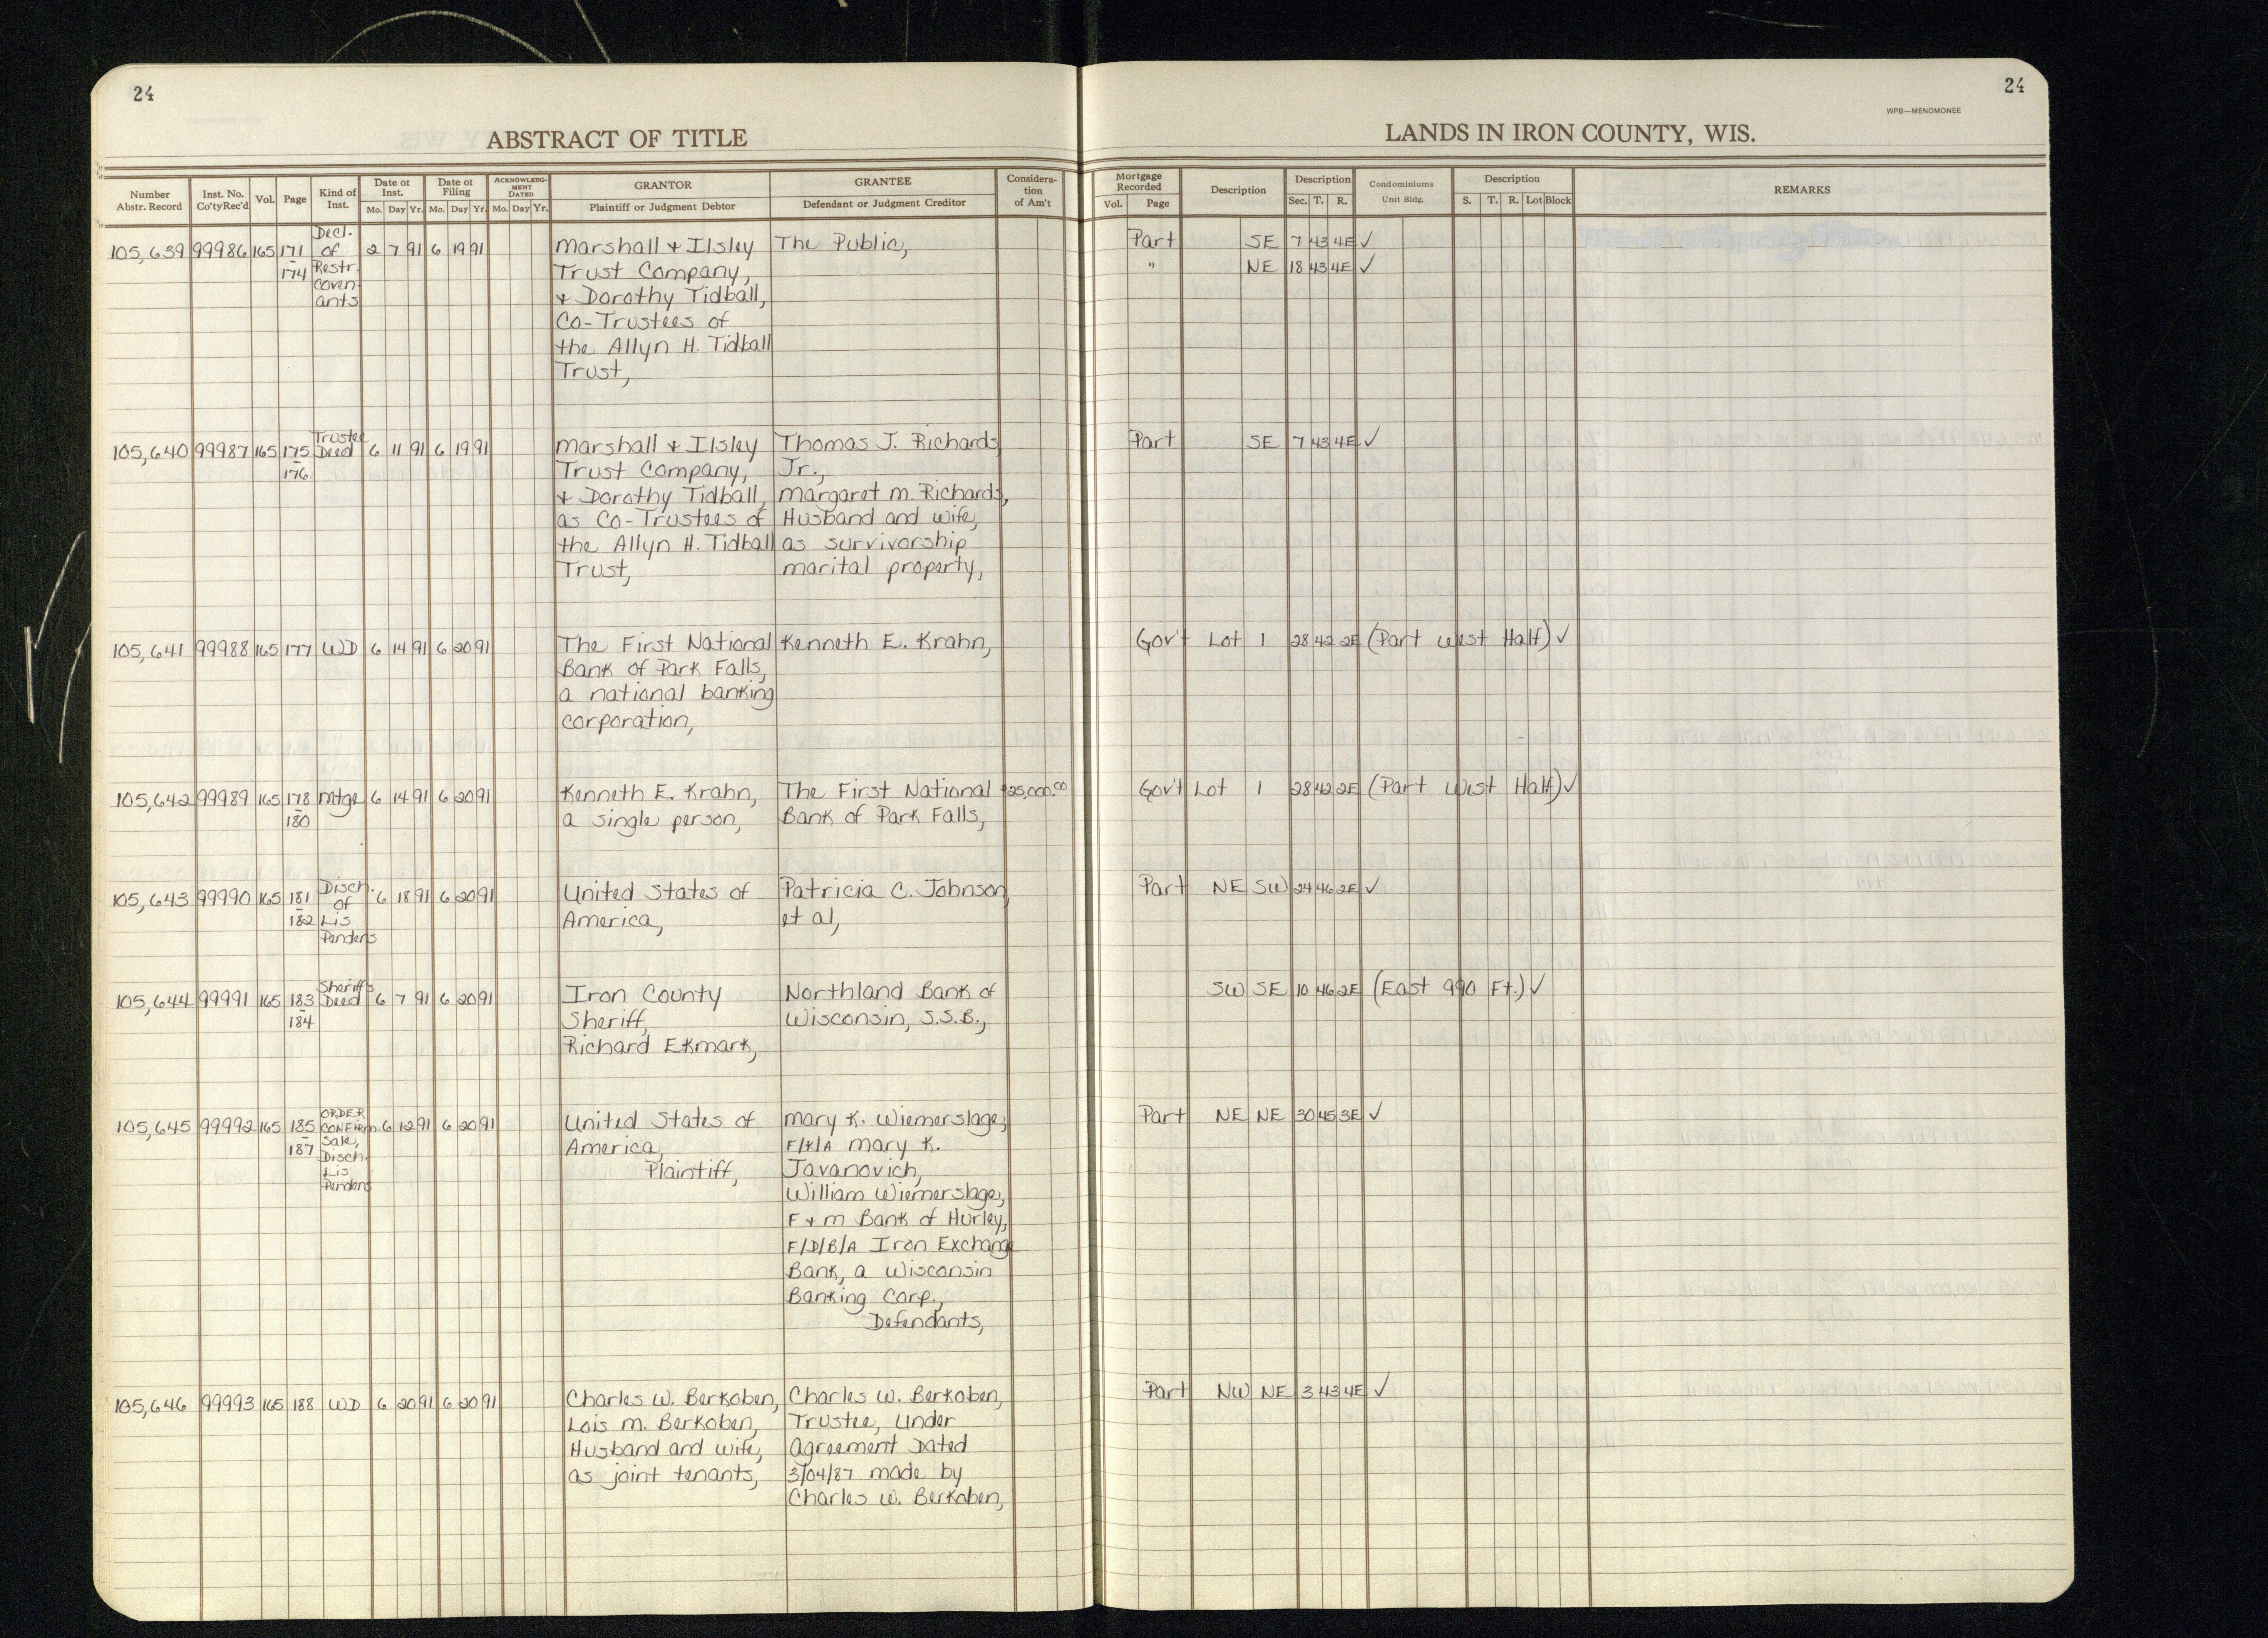 24
24
WPB—MENOMONEE
ABSTRACT OF TITLE
LANDS IN IRON COUNTY, WIS.
Number Abstr. Record | Inst. No. Co'tyRec'd | Vol. | Page | Kind of Inst. | Date of Inst. Mo. Day Yr. | Date of Filing Mo. Day Yr. | ACKNOWLEDGMENT DATED Mo. Day Yr. | GRANTOR Plaintiff or Judgment Debtor | GRANTEE Defendant or Judgment Creditor | Consideration of Am't | Mortgage Recorded Vol. Page | Description | Description Sec. T. R. | Condominiums Unit Bldg. | Description S. T. R. Lot Block | REMARKS
105,639 99986 165 171-174 Decl. of Restr. Coven-ants 2 7 91 6 19 91 Marshall & Ilsley The Public, Part SE 7 43 4E ✓
Trust Company, " NE 18 43 4E ✓
& Dorothy Tidball,
Co-Trustees of
the Allyn H. Tidball
Trust,
105,640 99987 165 175-176 Trustee Deed 6 11 91 6 19 91 Marshall & Ilsley Thomas J. Richards Part SE 7 43 4E ✓
Trust Company, Jr.,
& Dorothy Tidball, Margaret M. Richards,
as Co-Trustees of Husband and wife,
the Allyn H. Tidball as survivorship
Trust, marital property,
105,641 99988 165 177 WD 6 14 91 6 20 91 The First National Kenneth E. Krahn, Gov't Lot 1 28 42 2E (Part West Half) ✓
Bank of Park Falls,
a national banking
corporation,
105,642 99989 165 178-180 Mtge 6 14 91 6 20 91 Kenneth E. Krahn, The First National $25,000.00 Gov't Lot 1 28 42 2E (Part West Half) ✓
a single person, Bank of Park Falls,
105,643 99990 165 181-182 Disch. of Lis Pendens 6 18 91 6 20 91 United States of Patricia C. Johnson Part NE SW 24 46 2E ✓
America, et al,
105,644 99991 165 183-184 Sheriff's Deed 6 7 91 6 20 91 Iron County Northland Bank of SW SE 10 46 2E (East 990 Ft.) ✓
Sheriff, Wisconsin, S.S.B.,
Richard Ekmark,
105,645 99992 165 185-187 ORDER CONFIRM. Sale, Disch. Lis Pendens 6 12 91 6 20 91 United States of Mary K. Wiemerslage, Part NE NE 30 45 3E ✓
America, F/K/A Mary K.
Plaintiff, Javanovich,
William Wiemerslage,
F & M Bank of Hurley,
F/D/B/A Iron Exchange
Bank, a Wisconsin
Banking Corp.,
Defendants,
105,646 99993 165 188 WD 6 20 91 6 20 91 Charles W. Berkoben, Charles W. Berkoben, Part NW NE 3 43 4E ✓
Lois M. Berkoben, Trustee, Under
Husband and wife, Agreement Dated
as joint tenants, 3/04/87 made by
Charles W. Berkoben,